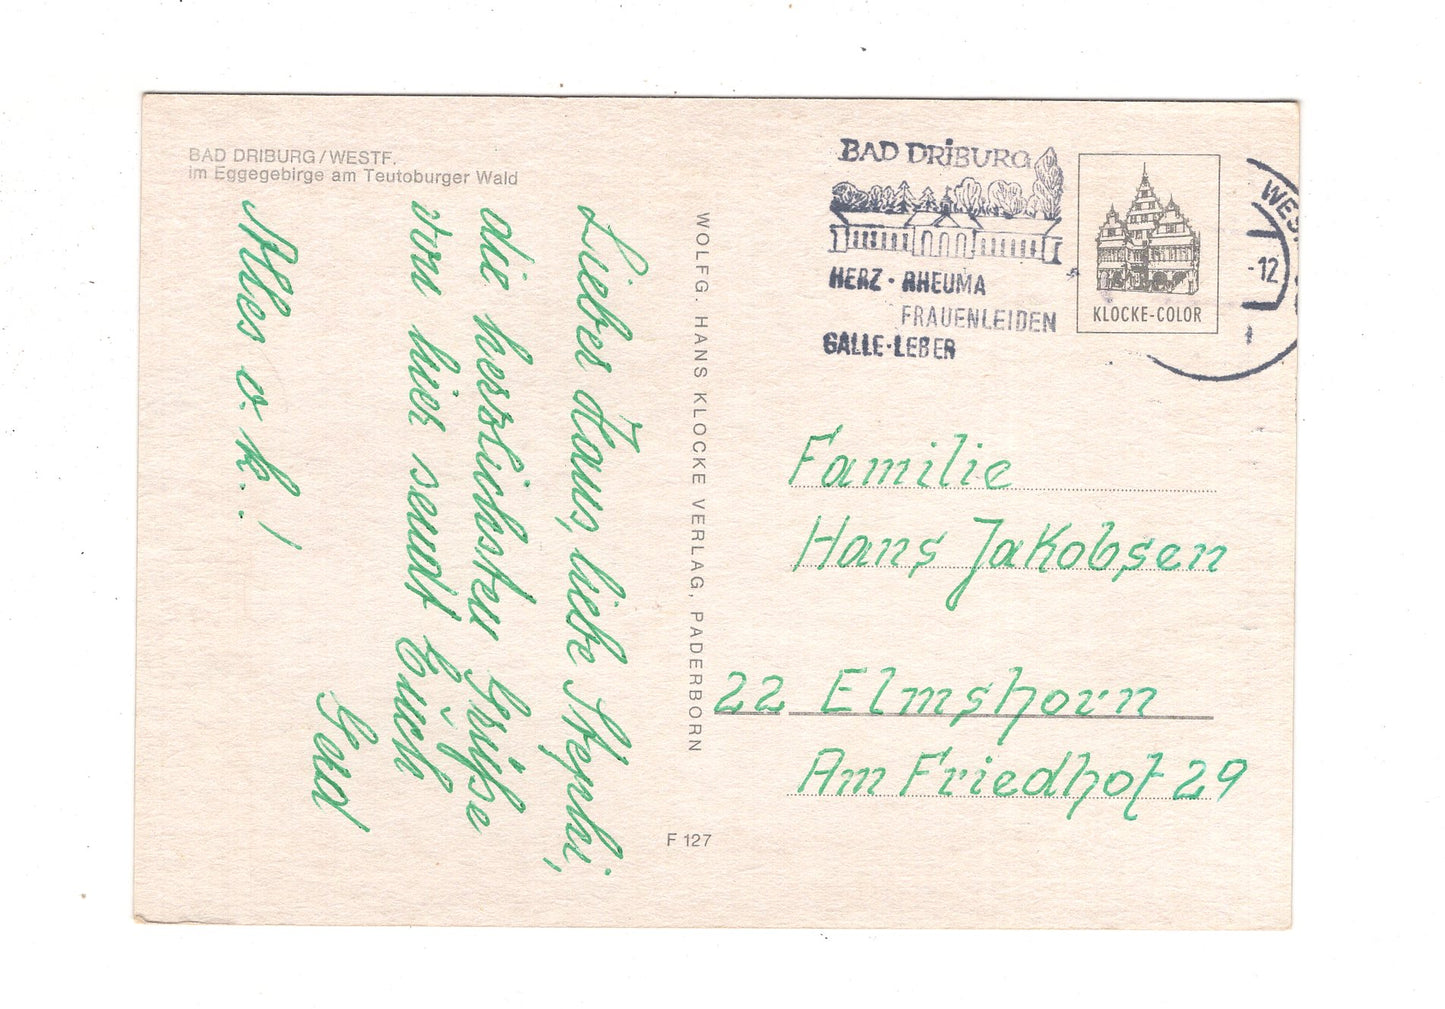 BAD DRIBURG/WESTF.
im Eggegebirge am Teutoburger Wald
Lieber Hans, liebe Stepsi,
die herzlichsten Grüße
von hier sendt Euch
Gerd
Alles o. k.!
WOLFG. HANS KLOCKE VERLAG, PADERBORN
F 127
BAD DRIBURG
HERZ · RHEUMA
FRAUENLEIDEN
GALLE · LEBER
KLOCKE-COLOR
-12
Familie
Hans Jakobsen
22 Elmshorn
Am Friedhof 29